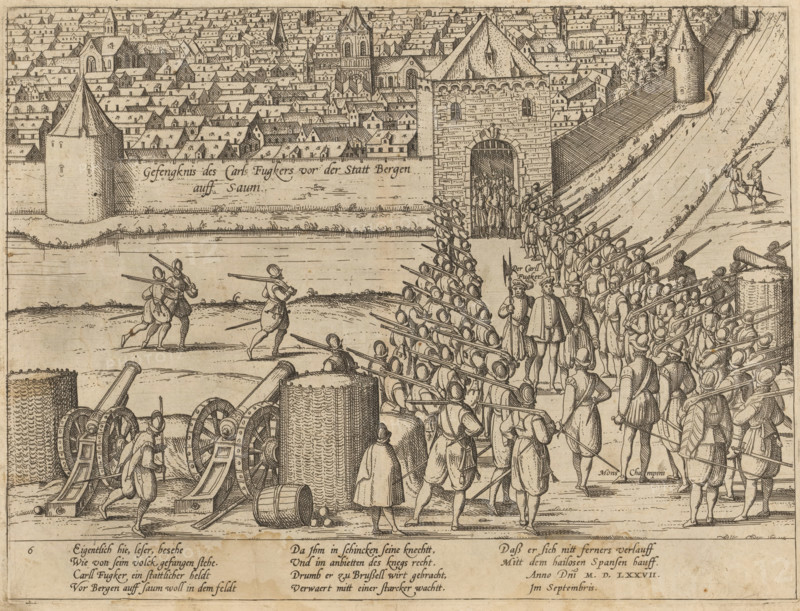 Gefengknis des Carls Fugkers vor der Statt Bergen
auff Saum.
Her Carll
Fugker
Mons Champini
6
Eigentlich hie, leser, besehe
Wie von seim volck, gefangen stehe.
Carll Fugker, ein stattlicher heldt
Vor Bergen auff saum woll in dem feldt
Da Jhm in schincken seine knechtt,
Vnd im anbietten des kriegs recht.
Drumb er zu Brußell wirt gebracht,
Verwaert mitt einer starcker wachtt.
Daß er sich nitt ferners verlauff
Mitt dem hailosen Spansen hauff.
Anno Dnī M. D. LXXVII.
Jm Septembris.